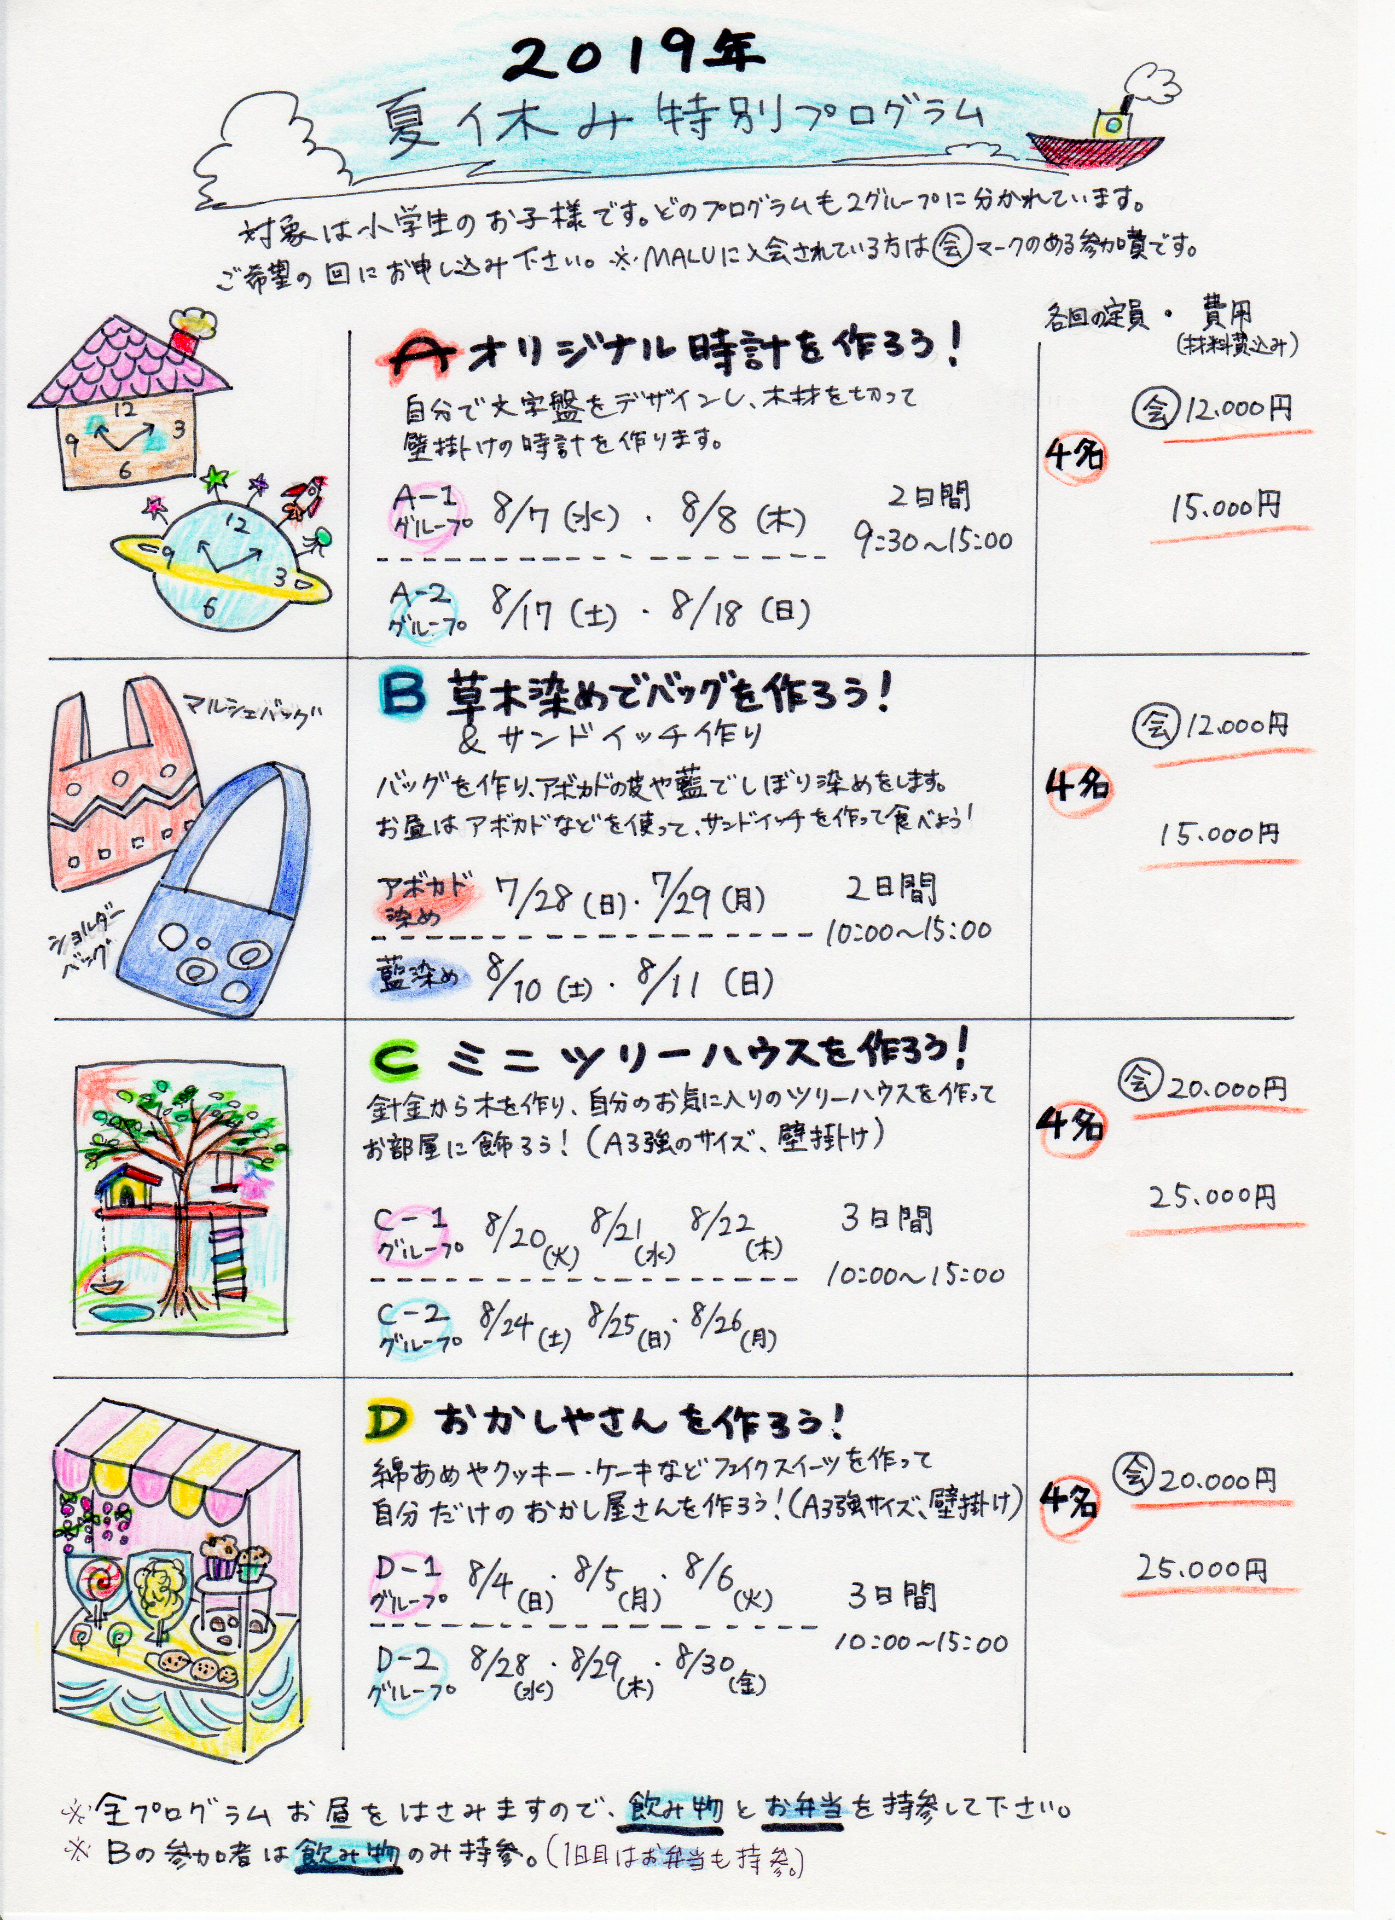 2019年
夏休み特別プログラム
対象は小学生のお子様です。どのプログラムも2グループに分かれています。
ご希望の回にお申し込み下さい。※MALUに入会されている方は㊎マークのある参加費です。
各回の定員・費用
(材料費込み)
A オリジナル時計を作ろう!
自分で文字盤をデザインし、木材を切って
壁掛けの時計を作ります。
A-1
グループ
8/7(水)・8/8(木)
2日間
9:30〜15:00
A-2
グループ
8/17(土)・8/18(日)
4名
会 12.000円
15.000円
12
9 3
6
12
9
3
6
マルシェバッグ
ショルダー
バッグ
B 草木染めでバッグを作ろう!
&サンドイッチ作り
バッグを作り、アボカドの皮や藍でしぼり染めをします。
お昼はアボカドなどを使って、サンドイッチを作って食べよう!
アボカド
染め
7/28(日)・7/29(月)
2日間
10:00〜15:00
藍染め 8/10(土)・8/11(日)
4名
会 12.000円
15.000円
C ミニツリーハウスを作ろう!
針金から木を作り、自分のお気に入りのツリーハウスを作って
お部屋に飾ろう!(A3強のサイズ、壁掛け)
C-1
グループ
8/20(火) 8/21(水) 8/22(木)
3日間
10:00〜15:00
C-2
グループ
8/24(土) 8/25(日)・8/26(月)
4名
会 20.000円
25.000円
D おかしやさんを作ろう!
綿あめやクッキー・ケーキなどフェイクスイーツを作って
自分だけのおかし屋さんを作ろう!(A3強サイズ、壁掛け)
D-1
グループ
8/4(日)・8/5(月)・8/6(火)
3日間
10:00〜15:00
D-2
グループ
8/28(水)・8/29(木)・8/30(金)
4名
会 20.000円
25.000円
※全プログラムお昼をはさみますので、飲み物とお弁当を持参して下さい。
※Bの参加者は飲み物のみ持参。(1日目はお弁当も持参。)